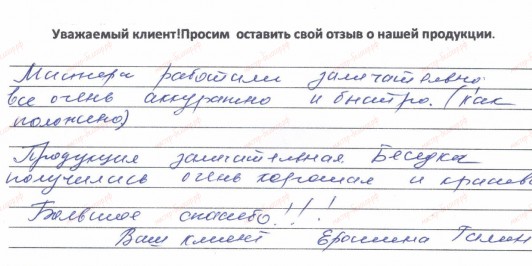 Уважаемый клиент!Просим оставить свой отзыв о нашей продукции.
Мастера работали замечательно
все очень аккуратно и быстро. (как
положено)
Продукция замечательная. Беседка
получилась очень хорошая и красива
Большое спасибо!!!
Ваш клиент Галин